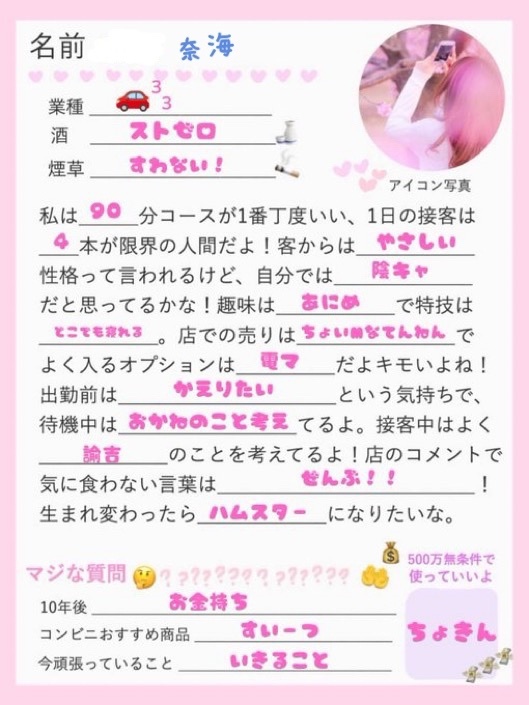 名前 奈海
業種 🚗³₃
酒 ストゼロ
煙草 すわない！
アイコン写真
私は90分コースが1番丁度いい、1日の接客は
4本が限界の人間だよ！客からはやさしい
性格って言われるけど、自分では陰キャ
だと思ってるかな！趣味はあにめで特技は
どこでも寝れる。店での売りはちょいMなてんねんで
よく入るオプションは電マだよキモいよね！
出勤前はかえりたいという気持ちで、
待機中はおかねのこと考えてるよ。接客中はよく
諭吉のことを考えてるよ！店のコメントで
気に食わない言葉はぜんぶ！！！
生まれ変わったらハムスターになりたいな。
マジな質問 🤔？？？？？？？？？？？？？？？？
500万無条件で
使っていいよ
ちょきん
10年後 お金持ち
コンビニおすすめ商品 すいーつ
今頑張っていること いきること